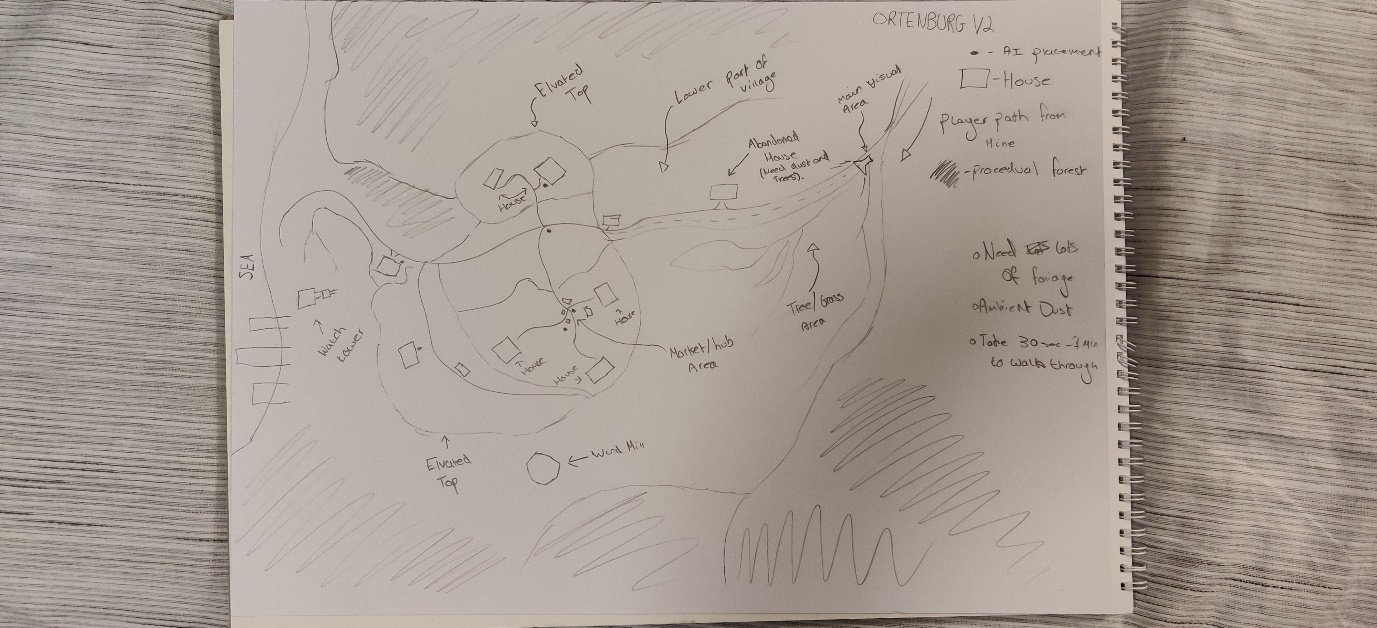 ORTENBURG V2
• - AI placement
- House
Player path from
Mine
- procedual forest
o Need lots
Of foriage
o Ambient Dust
o Take 30 sec - 1 Min
to walk through
Elvated
Top
Lower part of
village
main visual
Area
Abandoned
House
(Need dust and
trees).
House
SEA
Watch
tower
Tree/Grass
Area
House
House
House
Market/hub
Area
Elvated
Top
Wind Mill